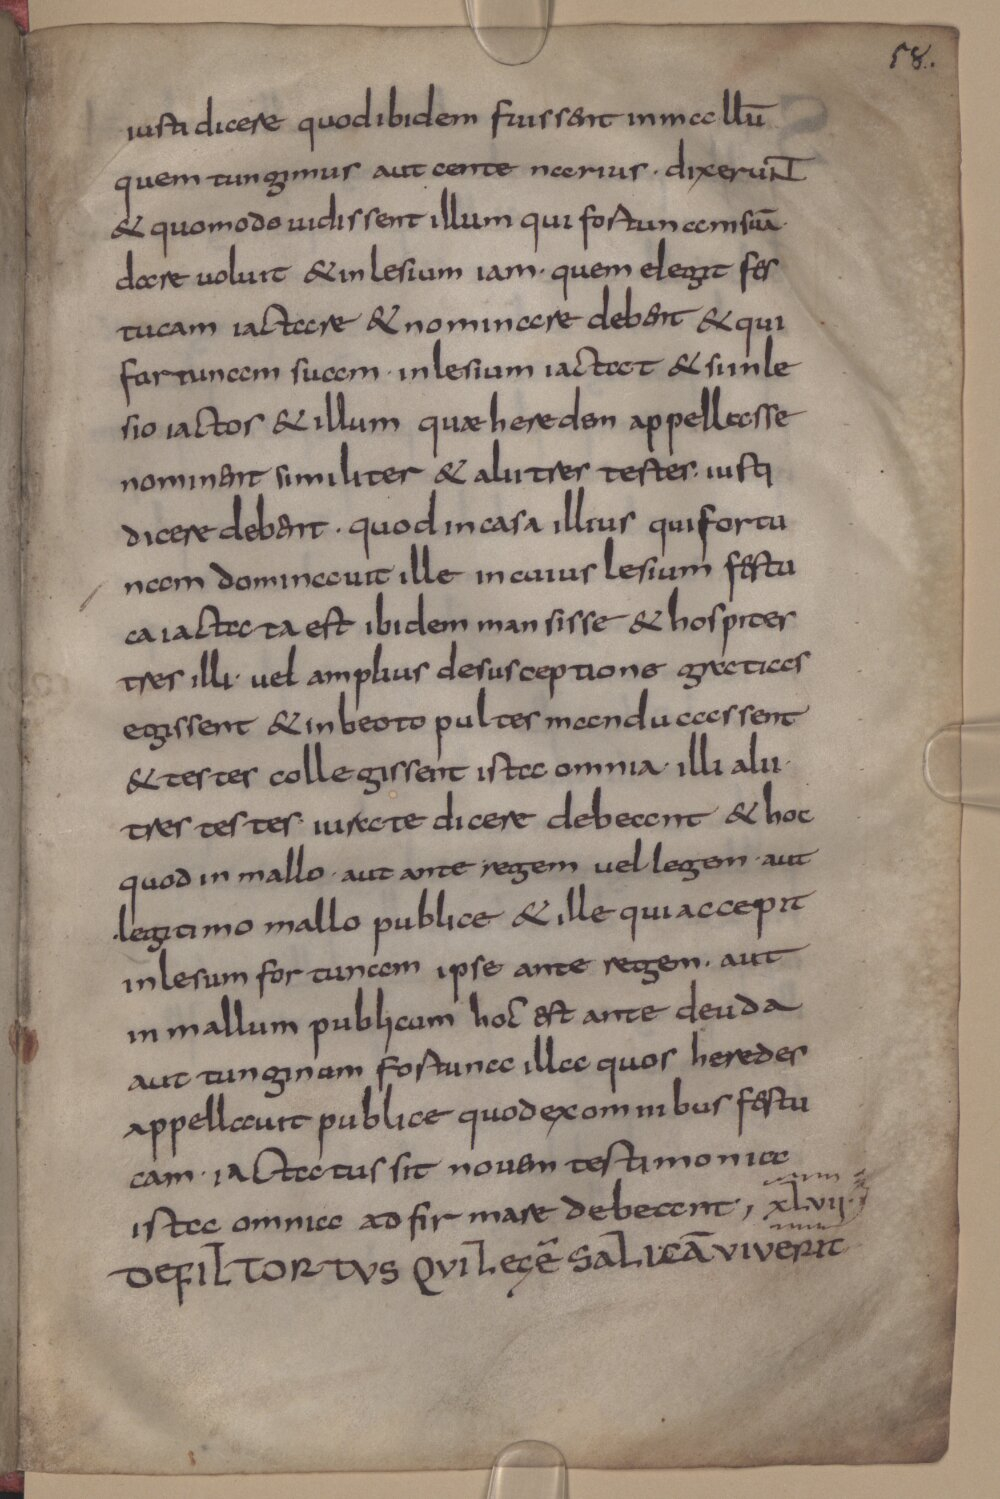 58.
iusti dicere quod ibidem fuissent in mallū
quem tunginus aut centenarius · dixerunt
& quomodo uidissent illum qui fostunam suā
dare uoluit & in lesium iam · quem elegit fes
tucam iactare & nominare debent & qui
fortunam suam · in lesium iactat & si in le
sio iactos & illum quæ heredem appellasse
nominent similiter & alii tres testes · iusti
dicere debent · quod in casa illius qui fortu
nam dominauit ille in cuius lesium festu
ca iactata est ibidem mansisse & hospites
tres illi · uel amplius de susceptione gratias
egissent & in beoto pultes manducassent
& testes collegissent ista omnia · illi alii ·
tres testes · iurate dicere debeant & hoc
quod in mallo · aut ante regem uel legem · aut
legitimo mallo publice & ille qui accepit
in lesum fortunam ipse ante regem · aut
in mallum publicum hoc est ante deuda
aut tunginum fostuna illa quos heredes
appellauit publice quod ex omnibus festu
cam · iactatus sit nouem testimonia
ista omnia adfirmare debeant ; xlvii ·
DE FILTORTUS QUI LEGĒ SALICĀ VIVERIT